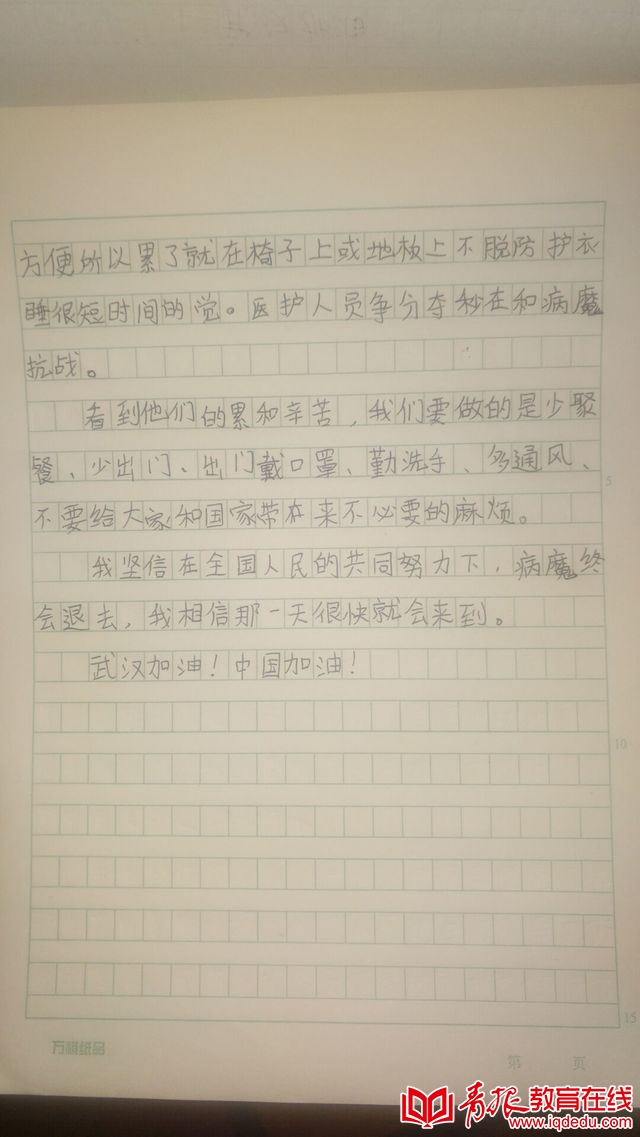 方便所以累了就在椅子上或地板上不脱防护衣
睡很短时间的觉。医护人员争分夺秒在和病魔
抗战。
看到他们的累和辛苦，我们要做的是少聚
餐、少出门、出门戴口罩、勤洗手、多通风、
5
不要给大家和国家带在来不必要的麻烦。
我坚信在全国人民的共同努力下，病魔终
会退去，我相信那一天很快就会来到。
武汉加油！中国加油！
10
15
万棋纸品
第 页
青报教育在线
www.iqdedu.com